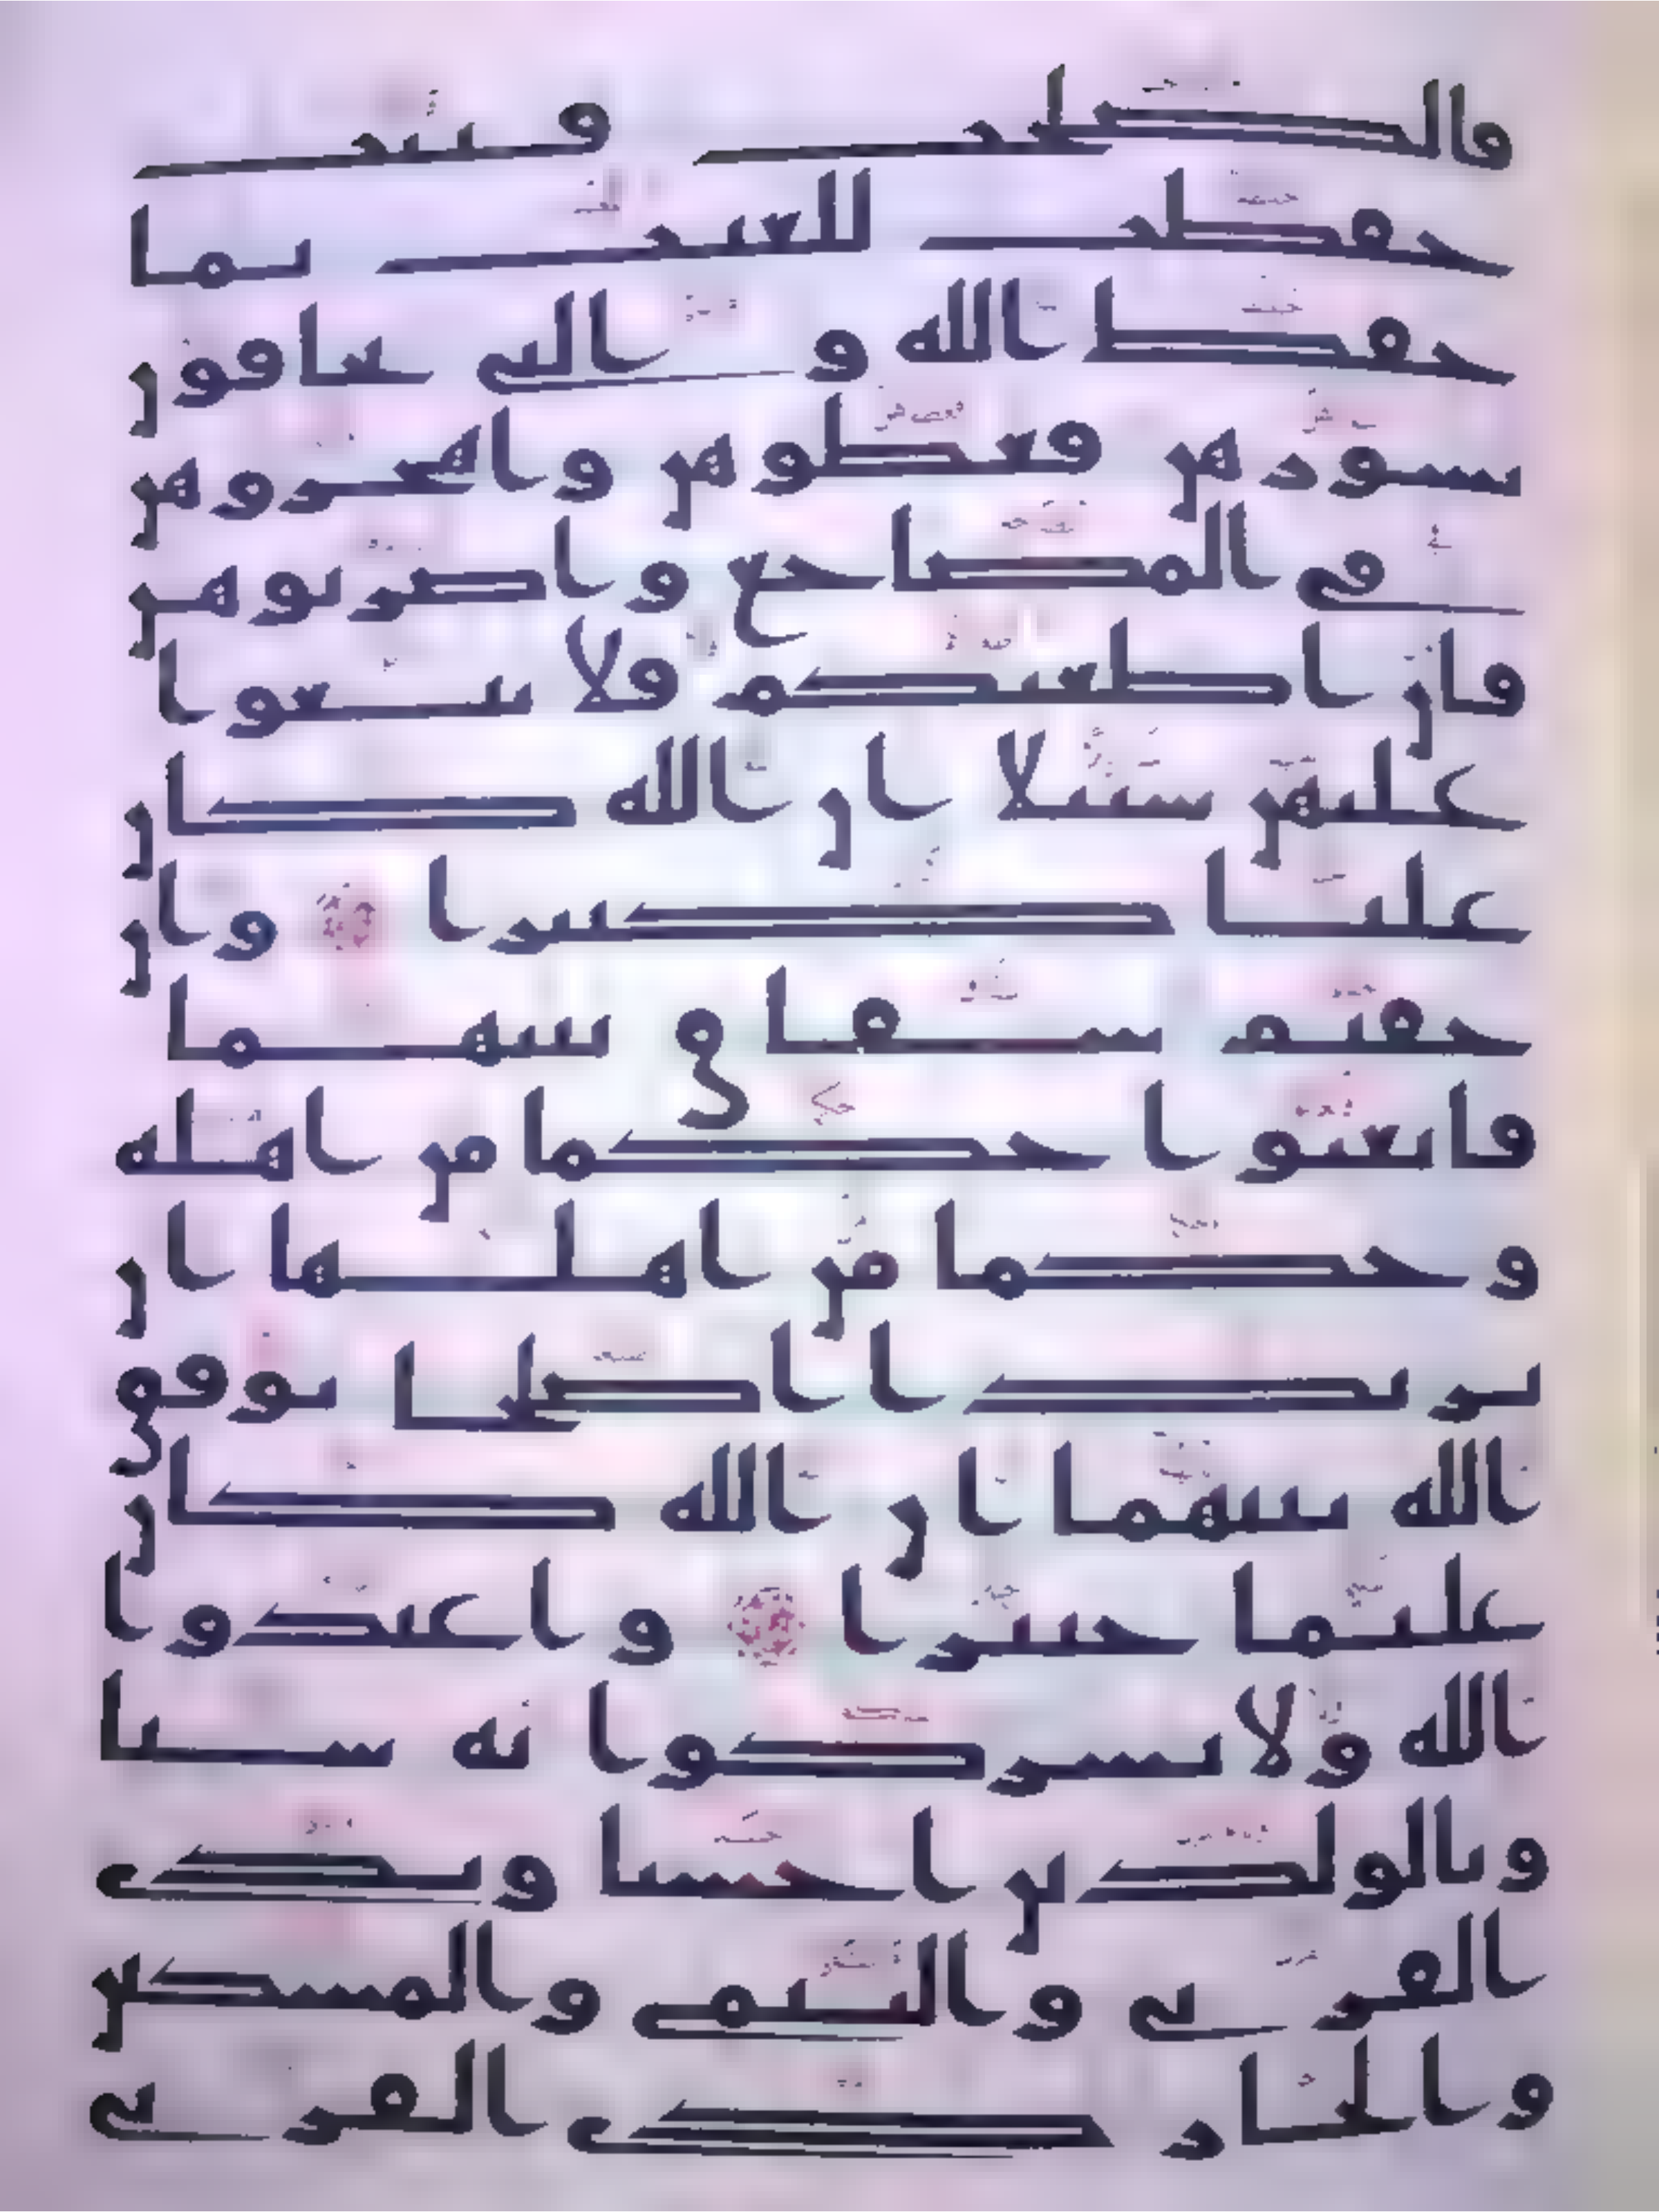 فالصلحت قنتت
حفظت للغيب بما
حفظ الله والتي تخافون
نشوزهن فعظوهن واهجروهن
في المضاجع واضربوهن
فان اطعنكم فلا تبغوا
عليهن سبيلا ان الله كان
عليا كبيرا وان
خفتم شقاق بينهما
فابعثوا حكما من اهله
وحكما من اهلها ان
يريدا اصلحا يوفق
الله بينهما ان الله كان
عليما خبيرا واعبدوا
الله ولا تشركوا به شيا
وبالولدين احسنا وبذي
القربى واليتمى والمسكين
والجار ذي القربى